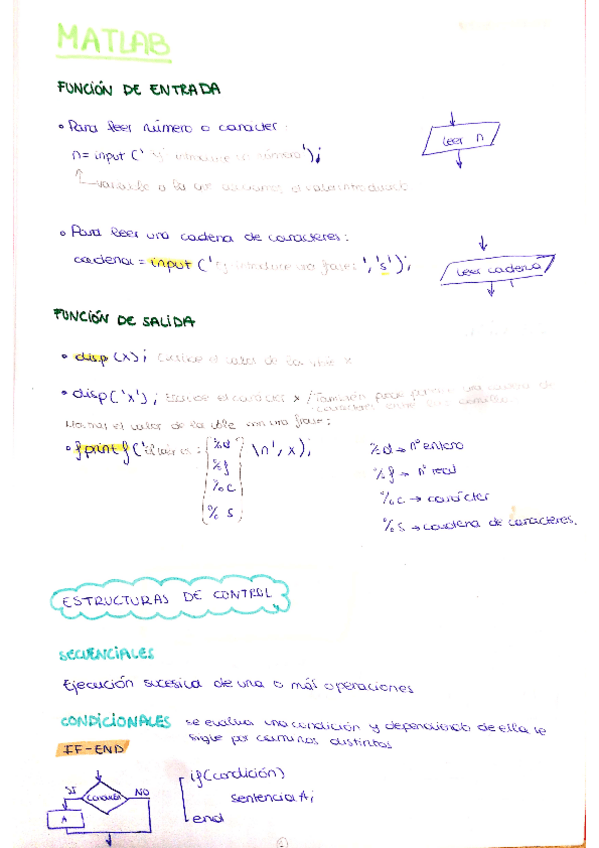 MATLAB
FUNCIÓN DE ENTRADA
• Para leer número o caracter:
n = input (' introduce un número');
leer n
variable a la que
• Para leer una cadena de caracteres:
cadena = input (' introduce una frase: ','s');
leer cadena
FUNCIÓN DE SALIDA
• disp (x); Escribe el valor de la x
• disp ('x'); Escribe el carácter x / También puede una cadena de
caracteres entre comillas
el valor de la vble con una frase:
• fprintf ('El valor es: %d \n', x);
%f
%c
%s
%d → nº entero
%f → nº real
%c → carácter
%s → cadena de caracteres.
ESTRUCTURAS DE CONTROL
SECUENCIALES
Ejecución sucesiva de una o más operaciones
CONDICIONALES se evalua una condición y dependiendo de ella se
sigue por caminos distintos
IF-END
SI
condición
NO
A
if (condición)
sentencia A;
end